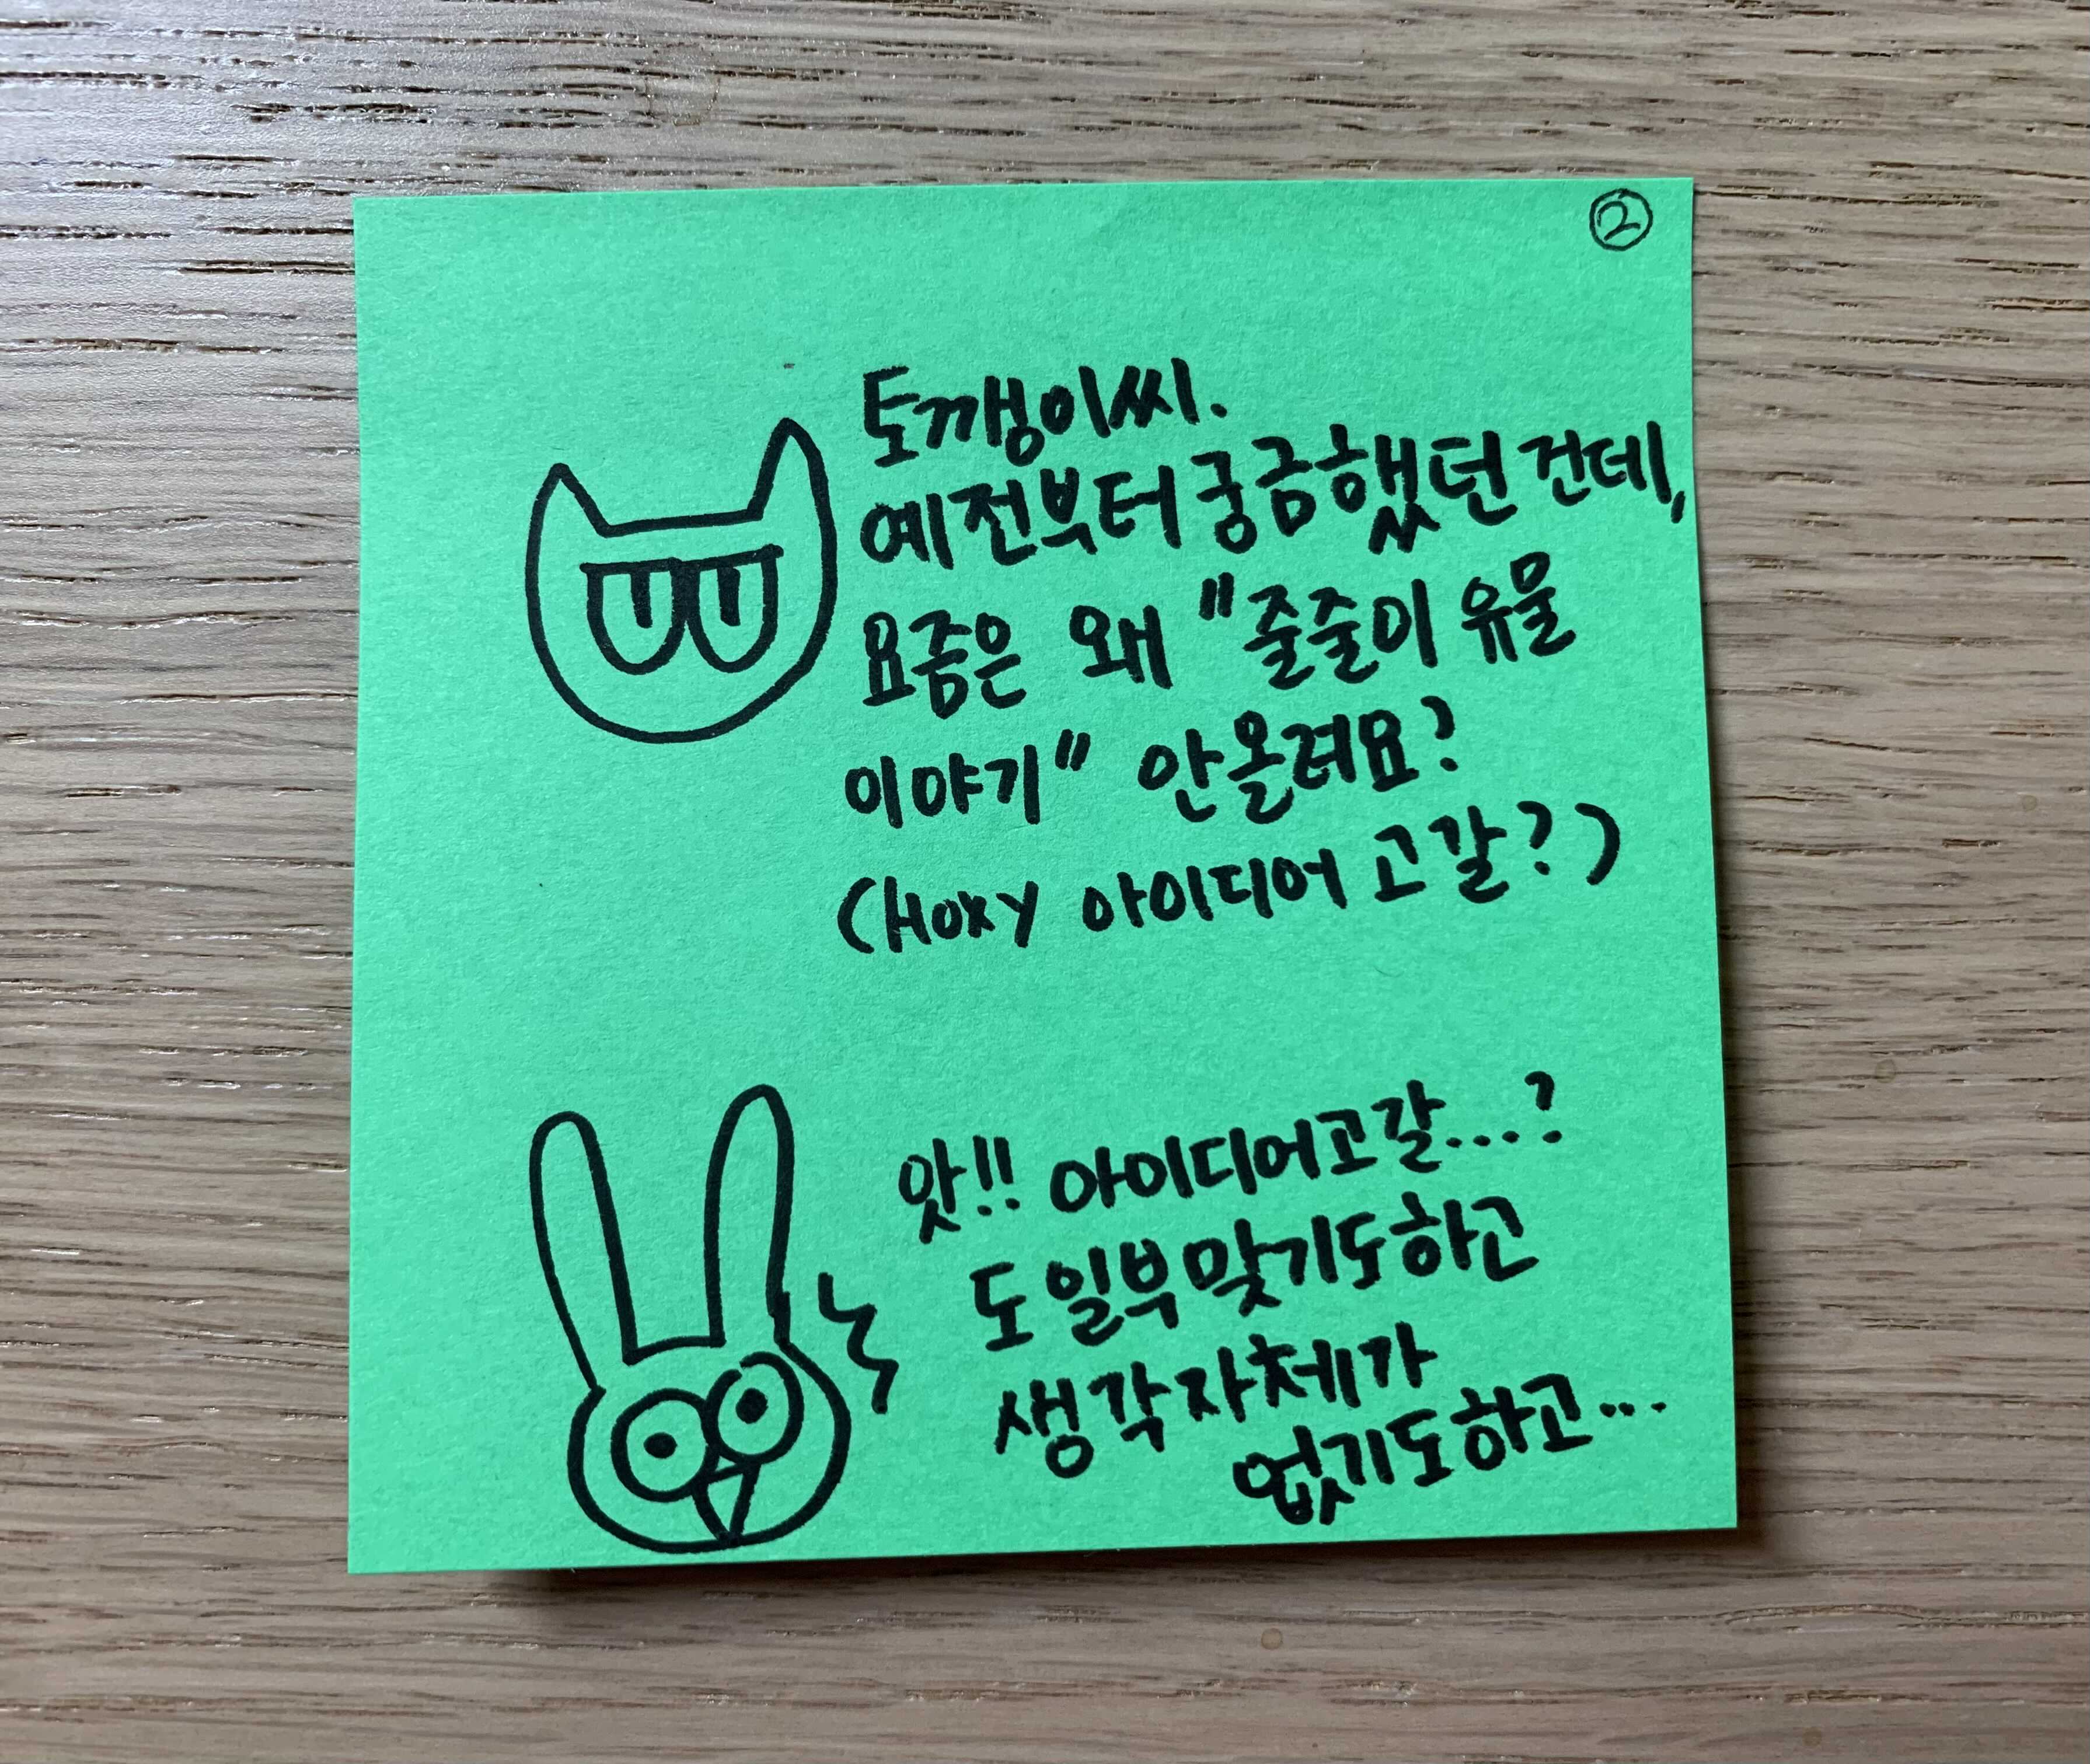 ②
토깽이씨.
예전부터 궁금했던 건데,
요즘은 왜 "줄줄이 유물
이야기" 안올려요?
(Hoxy 아이디어 고갈?)
앗!! 아이디어고갈...?
도 일부맞기도하고
생각자체가
없기도하고...